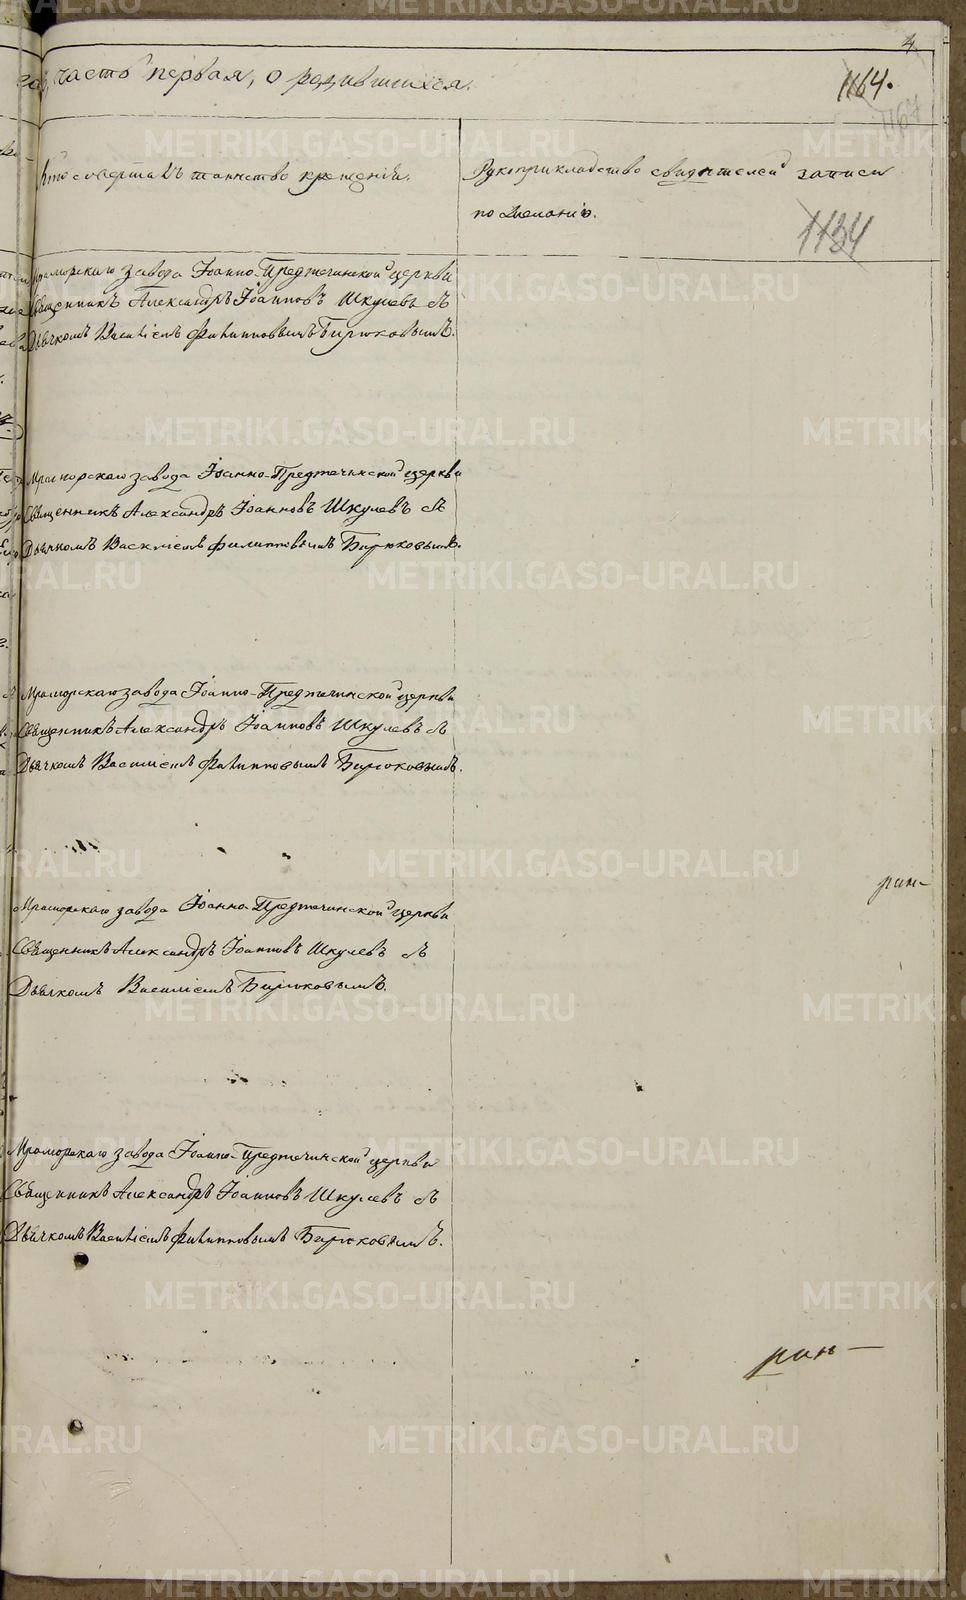 4.
часть первая, о родившихся.
1164.
1167
Кто совершалъ таинство крещенія.
Рукоприкладство свидѣтелей записи
по желанію.
1134
Мраморскаго завода Іоанно-Предтечинской церкви
Священникъ Александръ Іоанновъ Шкулевъ съ
Дьячкомъ Василіемъ Филипповымъ Бирюковымъ.
Мраморскаго завода Іоанно-Предтечинской церкви
Священникъ Александръ Іоанновъ Шкулевъ съ
Дьячкомъ Василіемъ Филипповымъ Бирюковымъ.
Мраморскаго завода Іоанно-Предтечинской церкви
Священникъ Александръ Іоанновъ Шкулевъ съ
Дьячкомъ Василіемъ Филипповымъ Бирюковымъ.
Мраморскаго завода Іоанно-Предтечинской церкви
Священникъ Александръ Іоанновъ Шкулевъ съ
Дьячкомъ Василіемъ Бирюковымъ.
Мраморскаго завода Іоанно-Предтечинской церкви
Священникъ Александръ Іоанновъ Шкулевъ съ
Дьячкомъ Василіемъ Филипповымъ Бирюковымъ.
METRIKI.GASO-URAL.RU